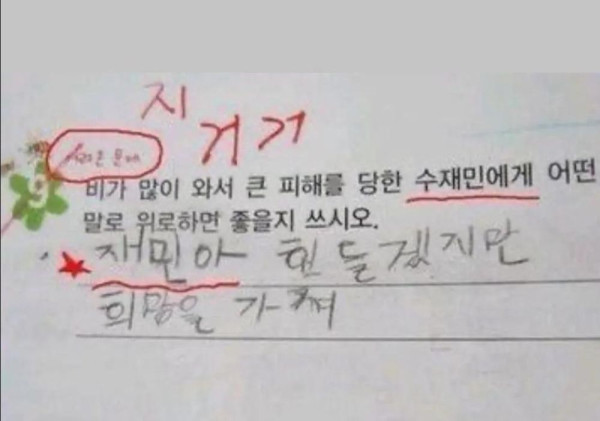 지
거거
서술형 문제
비가 많이 와서 큰 피해를 당한 수재민에게 어떤
말로 위로하면 좋을지 쓰시오.
재민아 힌들겠지만
희망을 가져